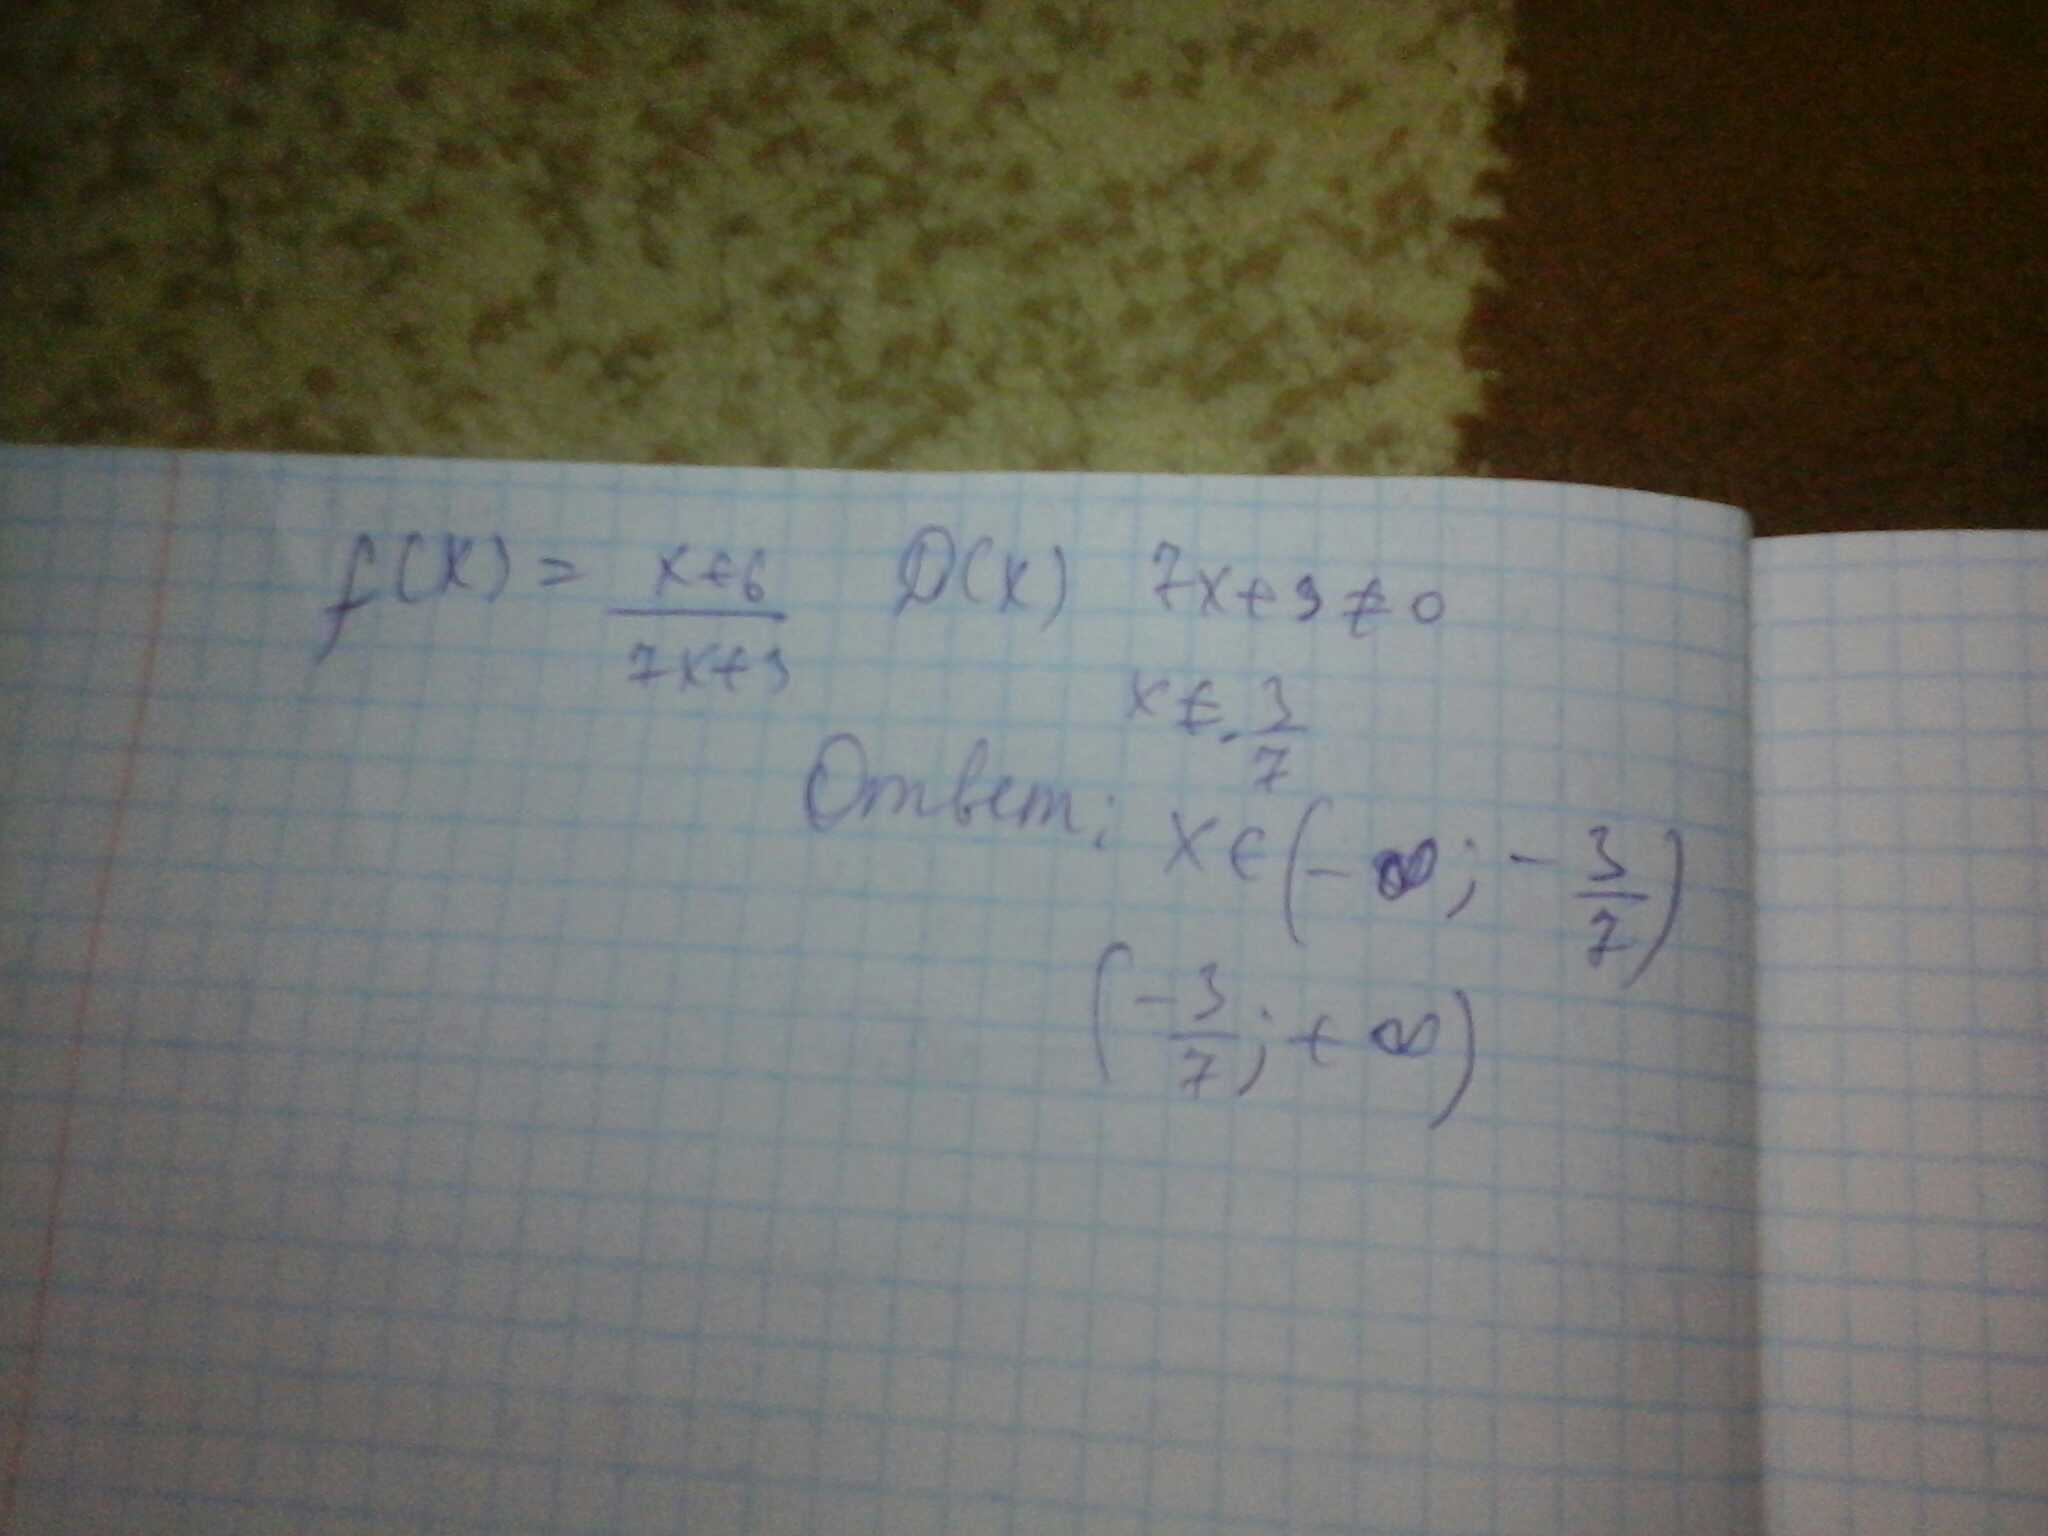 f(x) = x+6/7x+3 D(x) 7x+3≠0
x≠-3/7
Ответ: x∈(-∞; -3/7)
(-3/7; +∞)